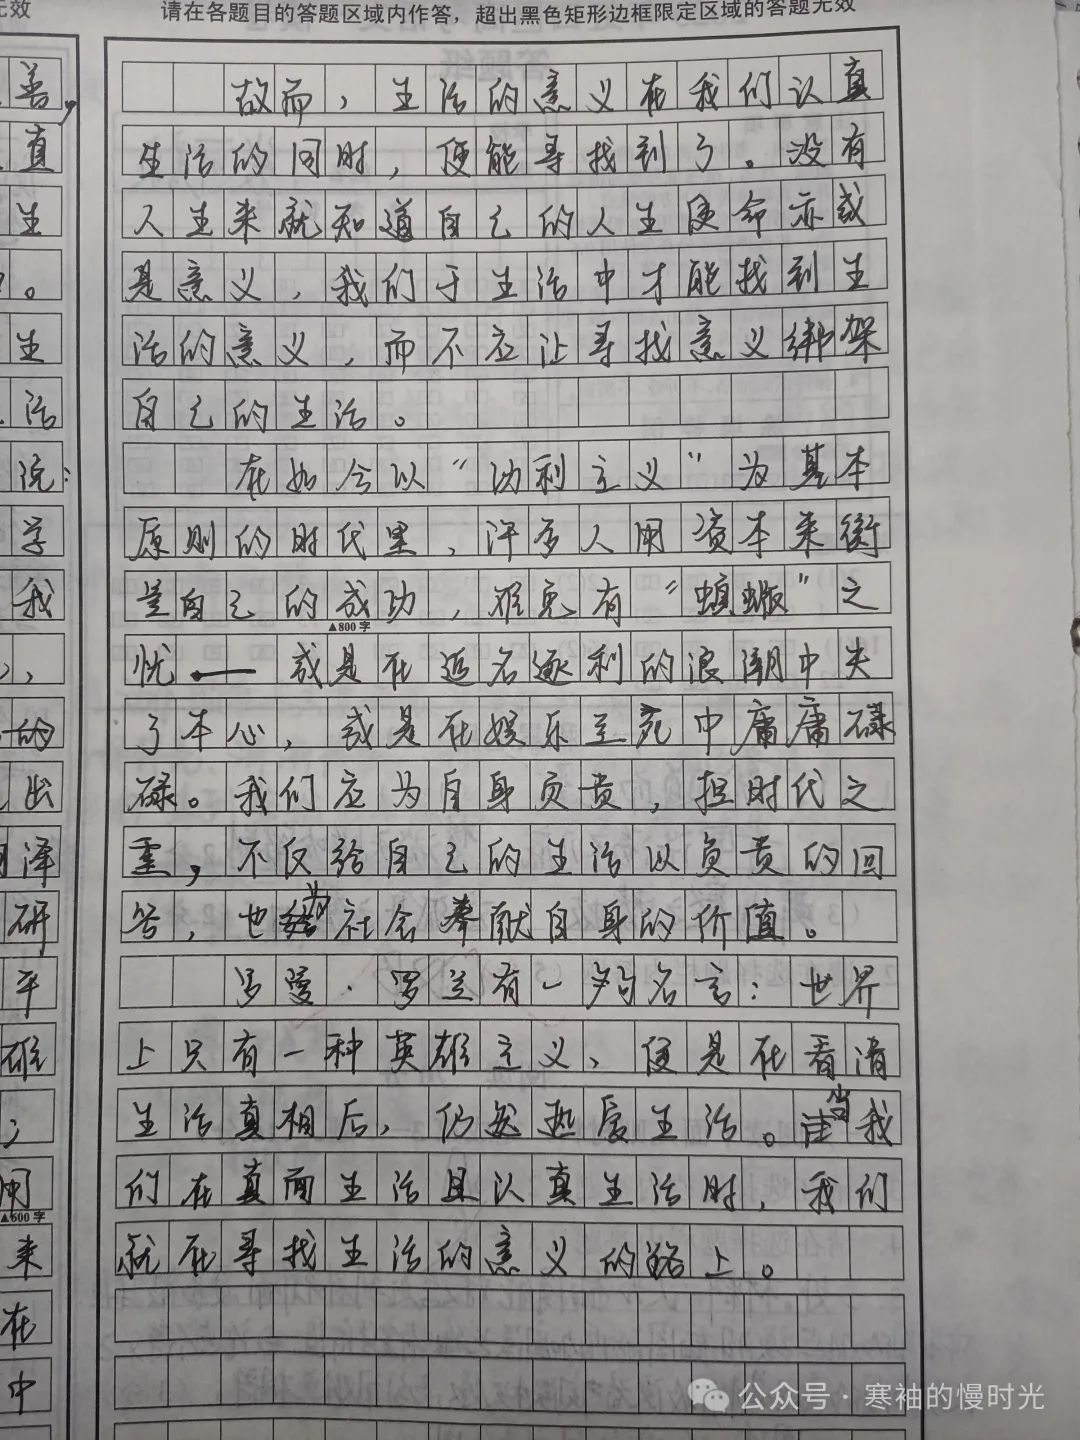 无效
请在各题目的答题区域内作答，超出黑色矩形边框限定区域的答题无效
善，
直
生
。
生
活
说：
学
我
，
的
出
泽
研
平
雄
；
用
▲600字
来
在
中
故而，生活的意义在我们认真
生活的同时，便能寻找到了。没有
人生来就知道自己的人生使命亦或
是意义，我们于生活中才能找到生
活的意义，而不应让寻找意义绑架
自己的生活。
在如今以“功利主义”为基本
原则的时代里，许多人用资本来衡
量自己的成功，难免有“蝜蝂”之
▲800字
忧——或是在追名逐利的浪潮中失
了本心，或是在娱乐至死中庸庸碌
碌。我们应为自身负责，担时代之
重，不仅给自己的生活以负责的回
答，也为社会奉献自身的价值。
罗曼·罗兰有一句名言：世界
上只有一种英雄主义，便是在看清
生活真相后，仍然热爱生活。当我
们在真面生活且认真生活时，我们
就在寻找生活的意义的路上。
公众号·寒袖的慢时光